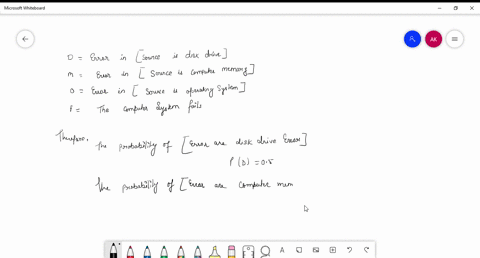 Microsoft Whiteboard
AK
D = Error in [Source is disk drive]
M = Error in [Source is computer memory]
O = Error in [Source is operating System]
F = The Computer System fails
Therefore,
The probability of [Error are disk drive Error]
P(D) = 0.5
The probability of [Error are Computer mem